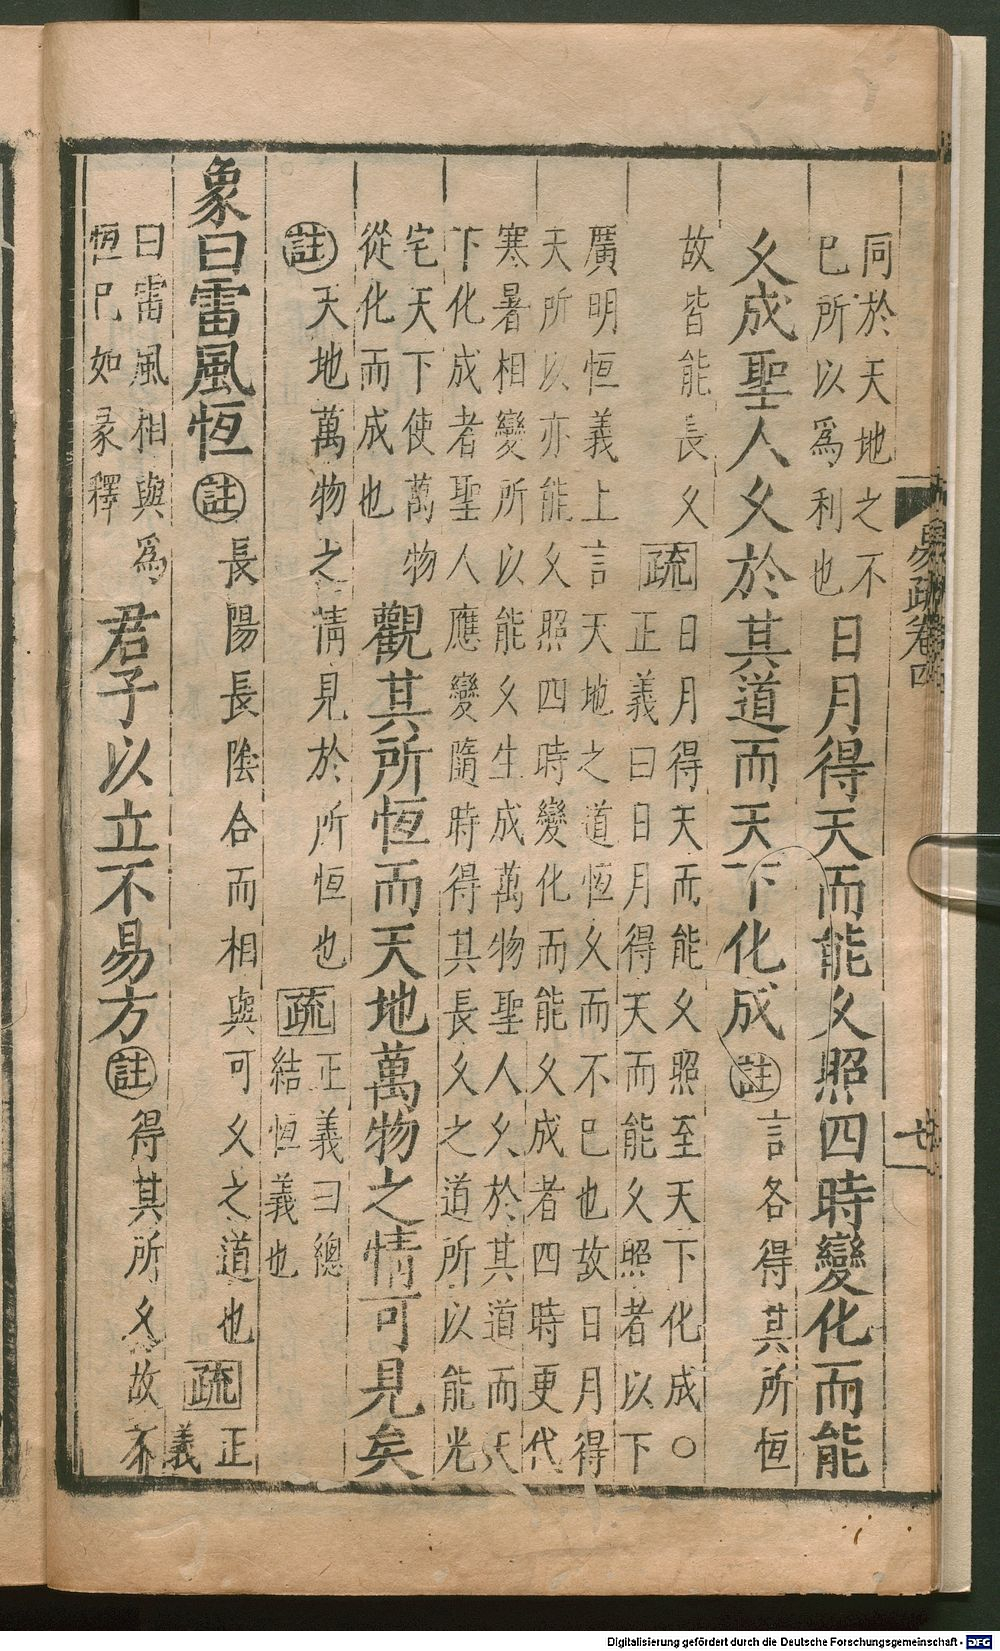 同於天地之不
已所以為利也
日月得天而能久照四時變化而能
久成聖人久於其道而天下化成
註
言各得其所恒
故皆能長久
疏
日月得天而能久照至天下化成○
正義曰日月得天而能久照者以下
廣明恒義上言天地之道恒久而不已也故日月得
天所以亦能久照四時變化而能久成者四時更代
寒暑相變所以能久生成萬物聖人久於其道而天
下化成者聖人應變隨時得其長久之道所以能光
宅天下使萬物
從化而成也
觀其所恒而天地萬物之情可見矣
註
天地萬物之情見於所恒也
疏
正義曰總
結恒義也
象曰雷風恒
註
長陽長陰合而相與可久之道也
疏
正
義
曰雷風相與為
恒已如彖釋
君子以立不易方
註
得其所久故不
易疏卷四
七
Digitalisierung gefördert durch die Deutsche Forschungsgemeinschaft - DFG